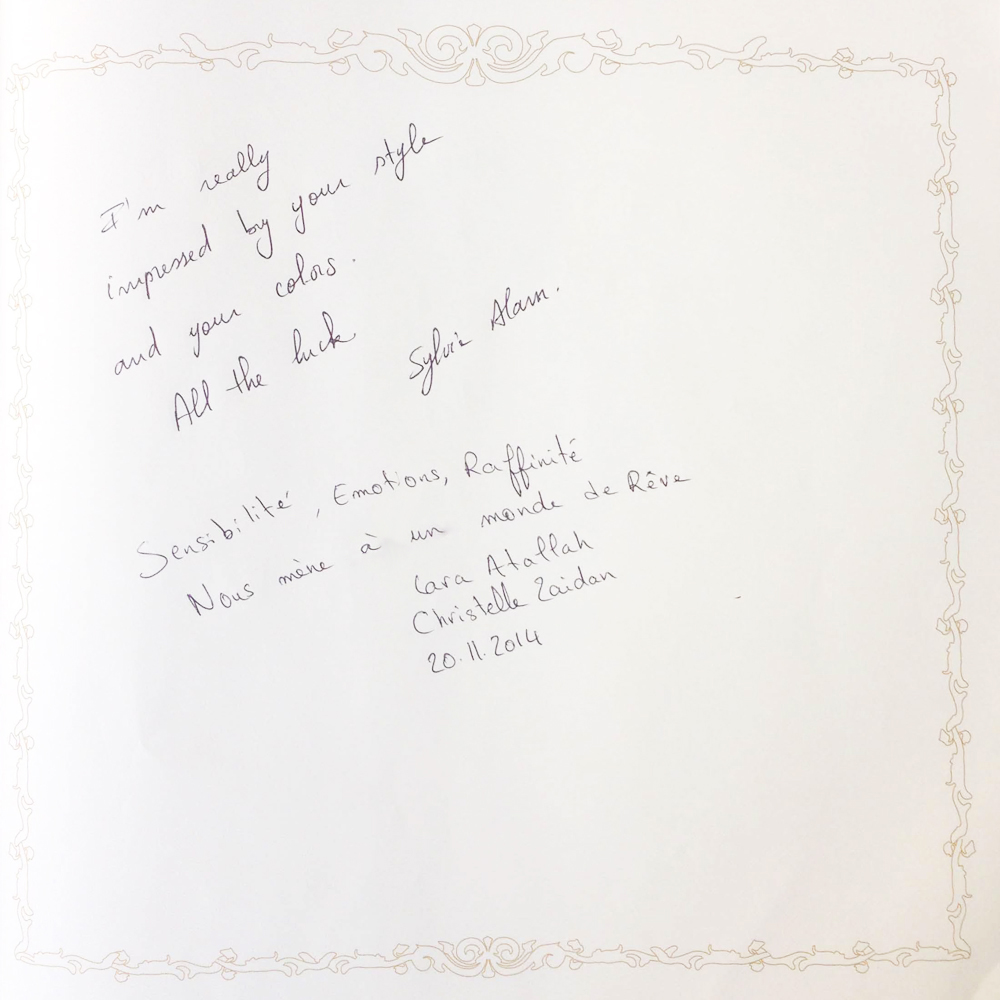 I'm really
impressed by your style
and your colors.
All the luck
Sylvie Alam.
Sensibilité, Emotions, Raffinité
Nous mène à un monde de Rêve
Lara Atallah
Christelle Zaidan
20.11.2014